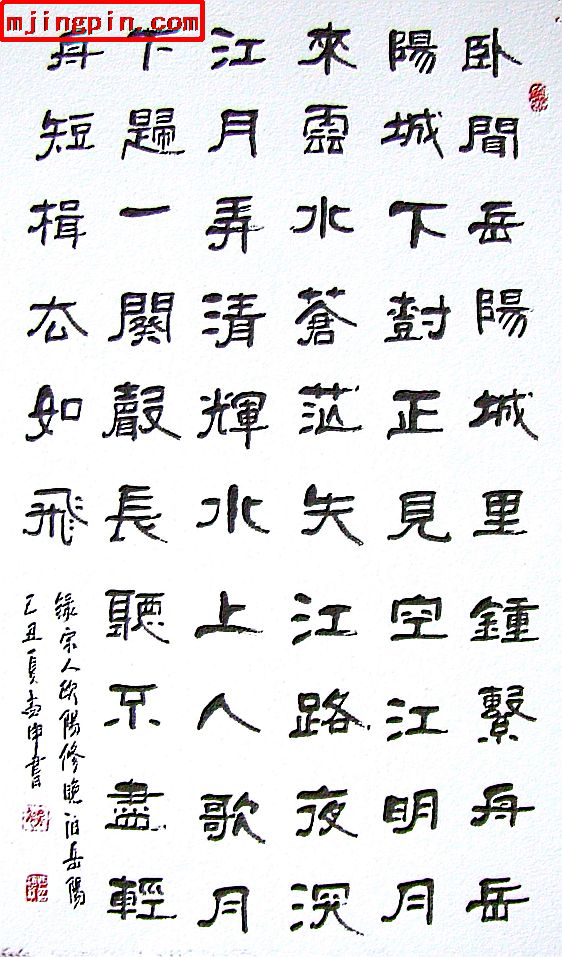 mjingpin.com
卧聞岳陽城里鍾繫舟岳
陽城下樹正見空江明月
來雲水蒼茫失江路夜深
江月弄清輝水上人歌月
下歸一闋聲長聽不盡輕
舟短楫去如飛
錄宋人欧陽修晚泊岳陽
己丑夏申書